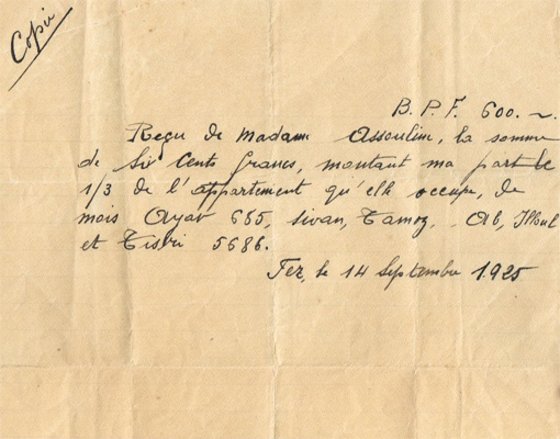 Copie
B. P. F. 600. ~.
Reçu de Madame Assouline, la somme
de Six Cents francs, montant ma part de
1/3 de l'appartement qu'elle occupe, de
mois Ayar 685, sivan, Tamoz, Ab, Illoul
et Tisri 5686.
Fez, le 14 Septembre 1925